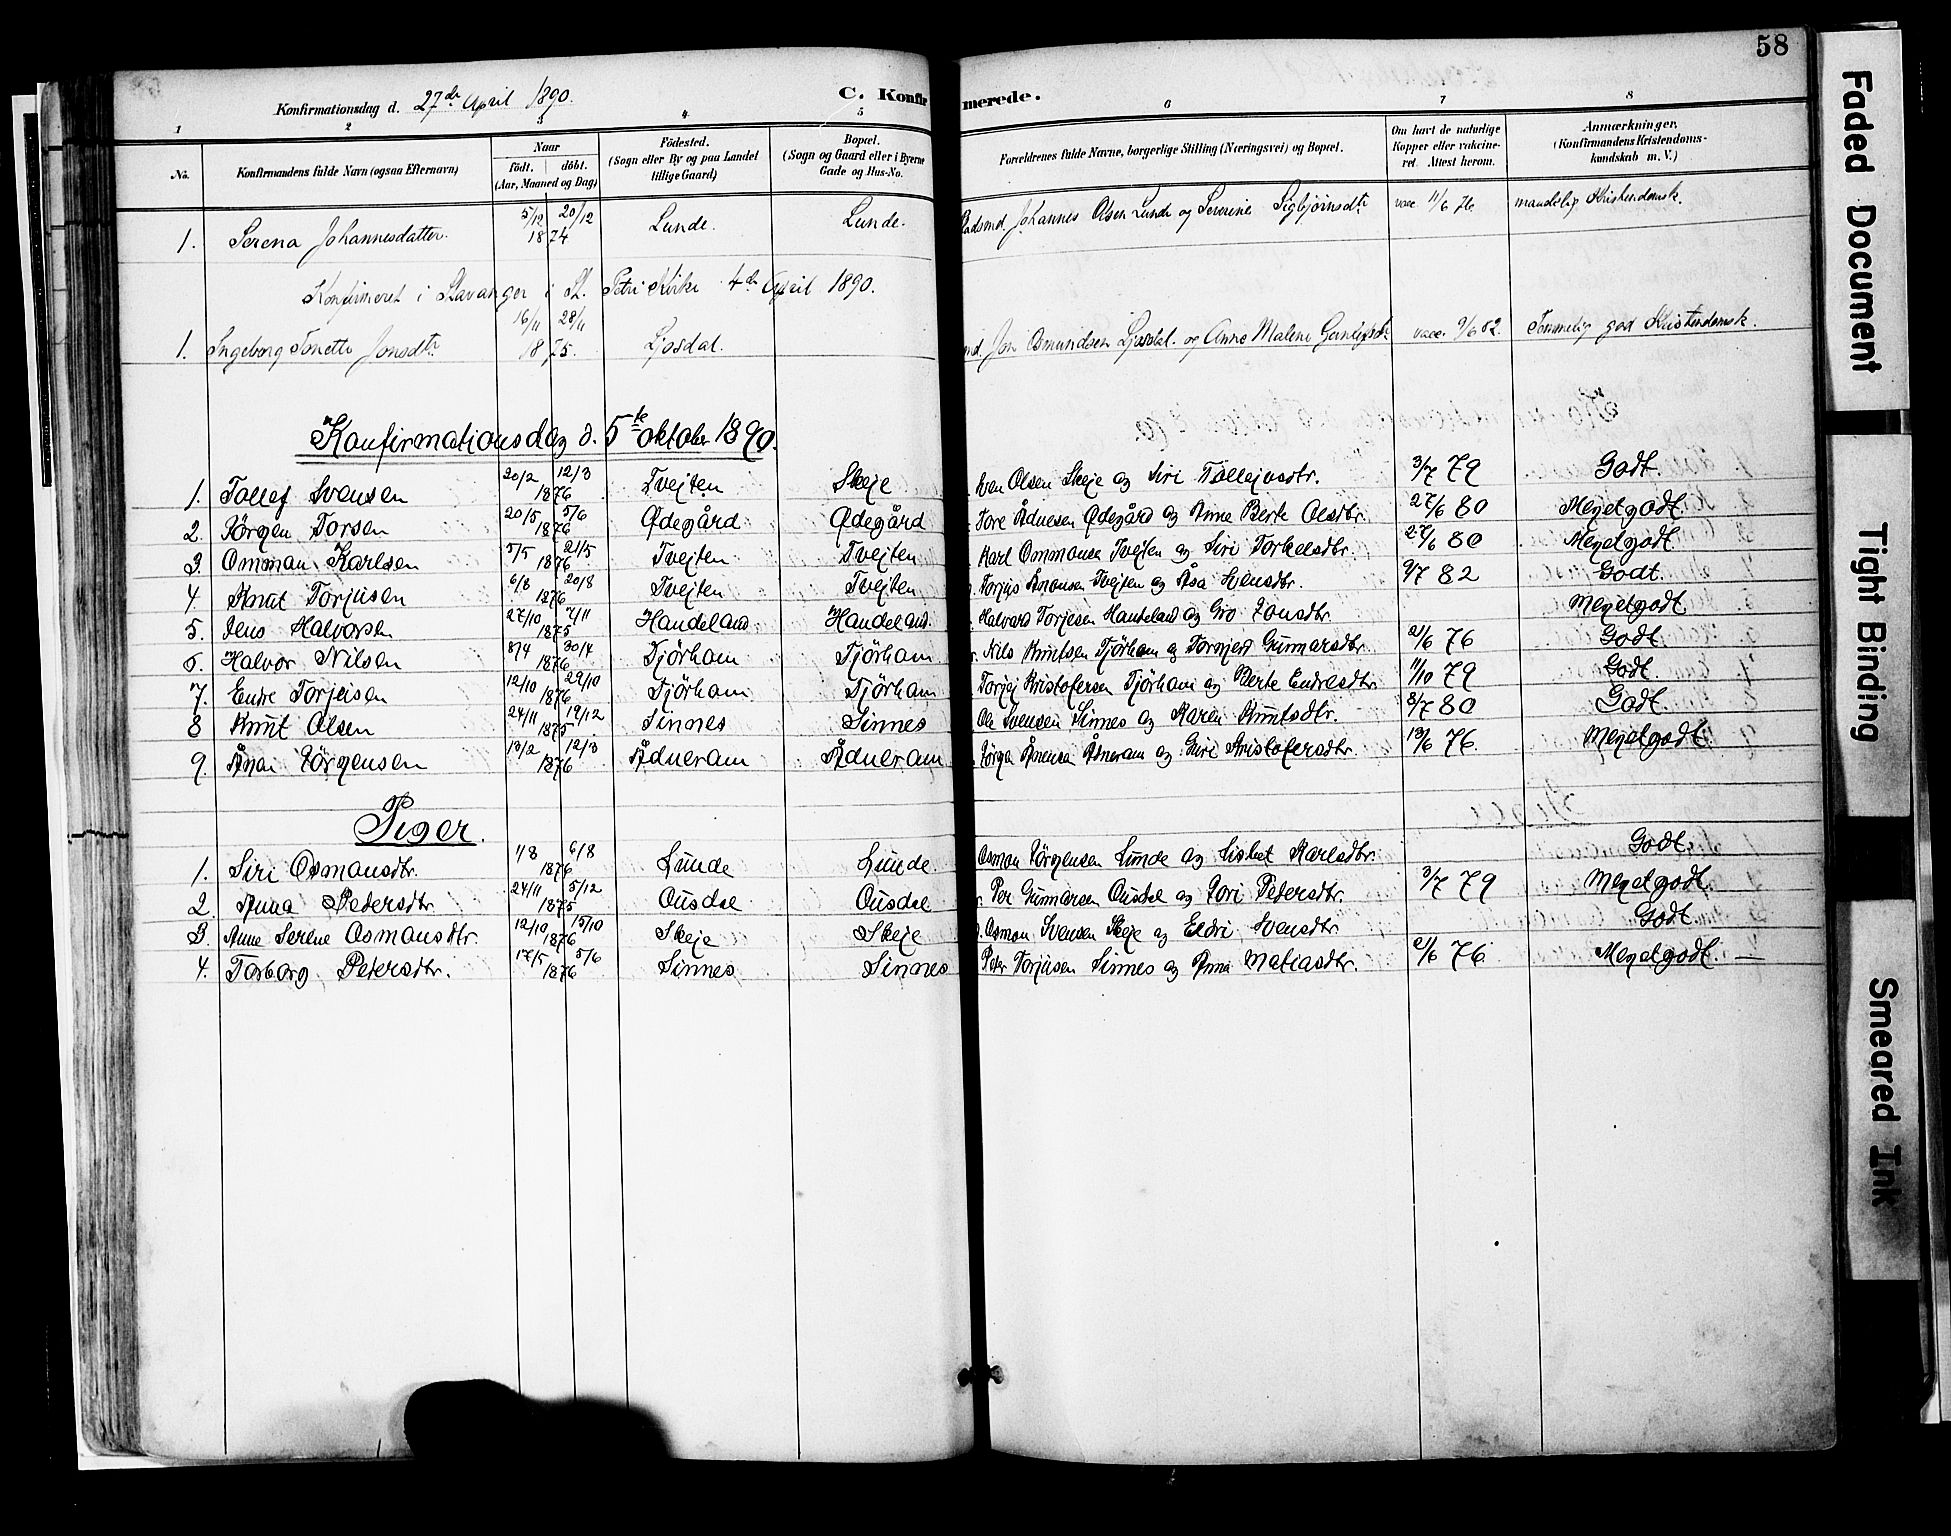 58
Konfirmationsdag d. 27de April 1890. C. Konfir merede.
1 2 3 4 5 6 7 8
No. Konfirmandens fulde Navn (ogsaa Efternavn) Naar født. døbt. (Aar, Maaned og Dag) Fødested. (Sogn eller By og paa Landet tillige Gaard) Bopæl. (Sogn og Gaard eller i Byerne Gade og Hus-No. Forældrenes fulde Navne, borgerlige Stilling (Næringsvei) og Bopæl. Om havt de naturlige Kopper eller vakcineret. Attest herom. Anmærkninger. (Konfirmandens Kristendomskundskab m. V.)
1. Serena Johannesdatter. 5/12 20/12 1874 Lunde. Lunde. Johannes Olsen Lunde og Severine Sigbjørnsdtr vacc. 11/6 76. mandelig Kristendomsk.
Konfirmeret i Stavanger i St. Petri Kirke 4de April 1890.
1. Ingeborg Tonette Jonsdtr. 16/11 28/11 1875. Ljosdal. Jon Osmundsen Ljosdal. og Anne Malene Gunlefsdtr vacc. 9/6 82. Temmelig god Kristendomsk.
Konfirmationsdag d. 5te oktober 1890.
1. Tollef Svensen 20/2 12/3 1876 Tvejten Skeje Sven Olsen Skeje og Siri Tollefsdtr. 3/7 79 Godt.
2 Jörgen Torsen 20/5 5/6 1876 Ødegård Ødegård Tore Ådnesen Ødegård og Anne Berte Olsdtr. 27/6 80 Megetgodt.
3. Omman Karlsen 5/5 21/5 1876 Tvejten Tvejten Karl Ommonsen Tvejten og Siri Torkelsdtr. 27/6 80 Megetgodt.
4. Knut Torjusen 6/8 20/8 1876 Tvejten Tvejten Torjus Ånonsen Tvejten og Åsa Svensdtr. 9/7 82 Godt.
5. Jens Halvorsen 27/10 7/11 1875 Handeland Handeland Halvard Torjesen Handeland og Gro Jonsdtr. Megetgodt
6. Halvor Nilsen 8/4 30/4 1876 Tjörham Tjörham Nils Knutsen Tjörham og Tormjerd Gunnarsdtr. 21/6 76 Godt.
7. Endre Torjeisen 12/10 29/10 1876 Tjörham Tjörham Torjej Kristofersen Tjörham og Berte Endresdtr. 11/10 79 Godt.
8 Knut Olsen 24/11 19/12 1875 Sinnes Sinnes Ole Svensen Sinnes og Karen Knutsdtr. 8/7 80 Godt.
9. Ånai Jörgensen 13/2 12/3 1876 Ådneram Ådneram Jörgen Ånensen Ådneram og Guri Kristofersdtr 13/6 76. Megetgodt.
Piger.
1. Siri Osmansdtr. 1/8 6/8 1876 Lunde Lunde Osman Jörgensen Lunde og Lisbet Karlsdtr. Godt.
2. Anna Pedersdtr. 24/11 5/12 1875 Ousdal Ousdal Per Gunnarsen Ousdal og Tori Pedersdtr. 3/7 79 Megetgodt.
3. Anne Serene Osmansdtr. 12/10 15/10 1876 Skeje Skeje Osmon Svensen Skeje og Eldri Svensdtr Godt.
4. Torborg Petersdtr. 17/5 5/6 1876 Sinnes Sinnes Peter Torjusen Sinnes og Anna Matiasdtr. 21/6 76 Megetgodt.
Faded Document
Tight Binding
Smeared Ink